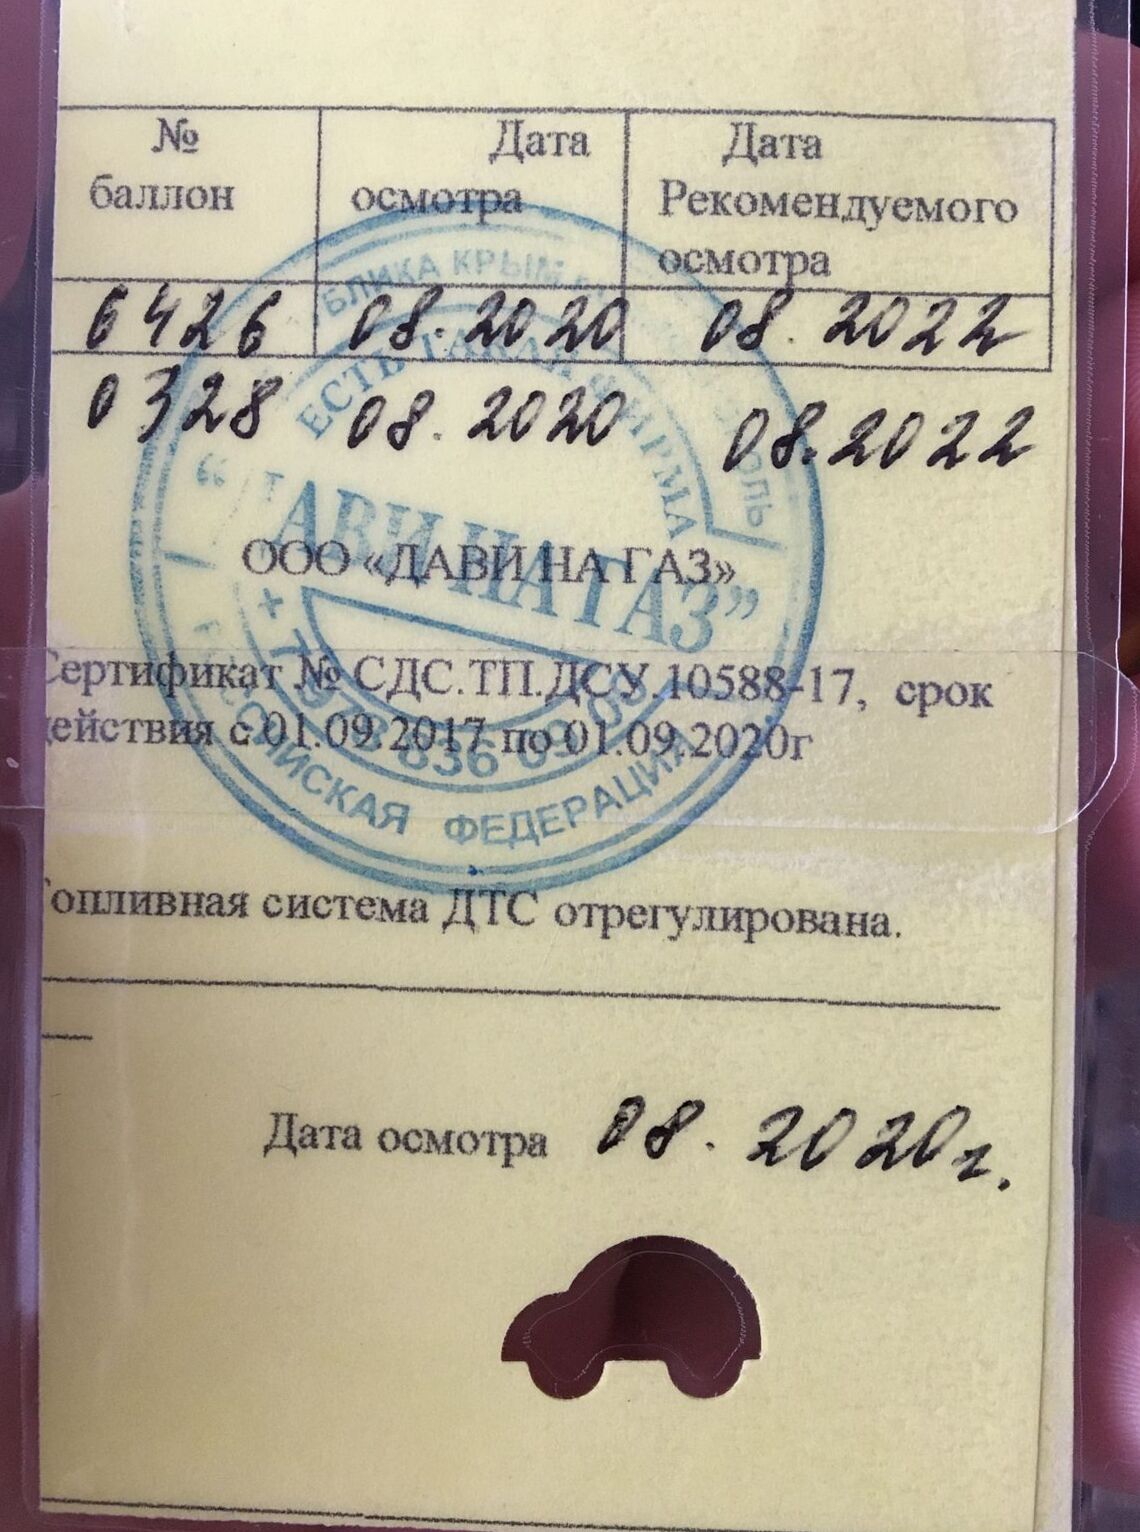 № баллон
Дата осмотра
Дата Рекомендуемого осмотра
6426 08.2020 08.2022
0328 08.2020 08.2022
ООО «ДАВИ НА ГАЗ»
Сертификат № СДС.ТП.ДСУ.10588-17, срок
действия с 01.09.2017 по 01.09.2020г
Топливная система ДТС отрегулирована.
Дата осмотра 08.2020г.
БЛИКА КРЫМ
ЕСТЬ ТАКАЯ ФИРМА
“ДАВИ НА ГАЗ”
РОССИЙСКАЯ ФЕДЕРАЦИЯ